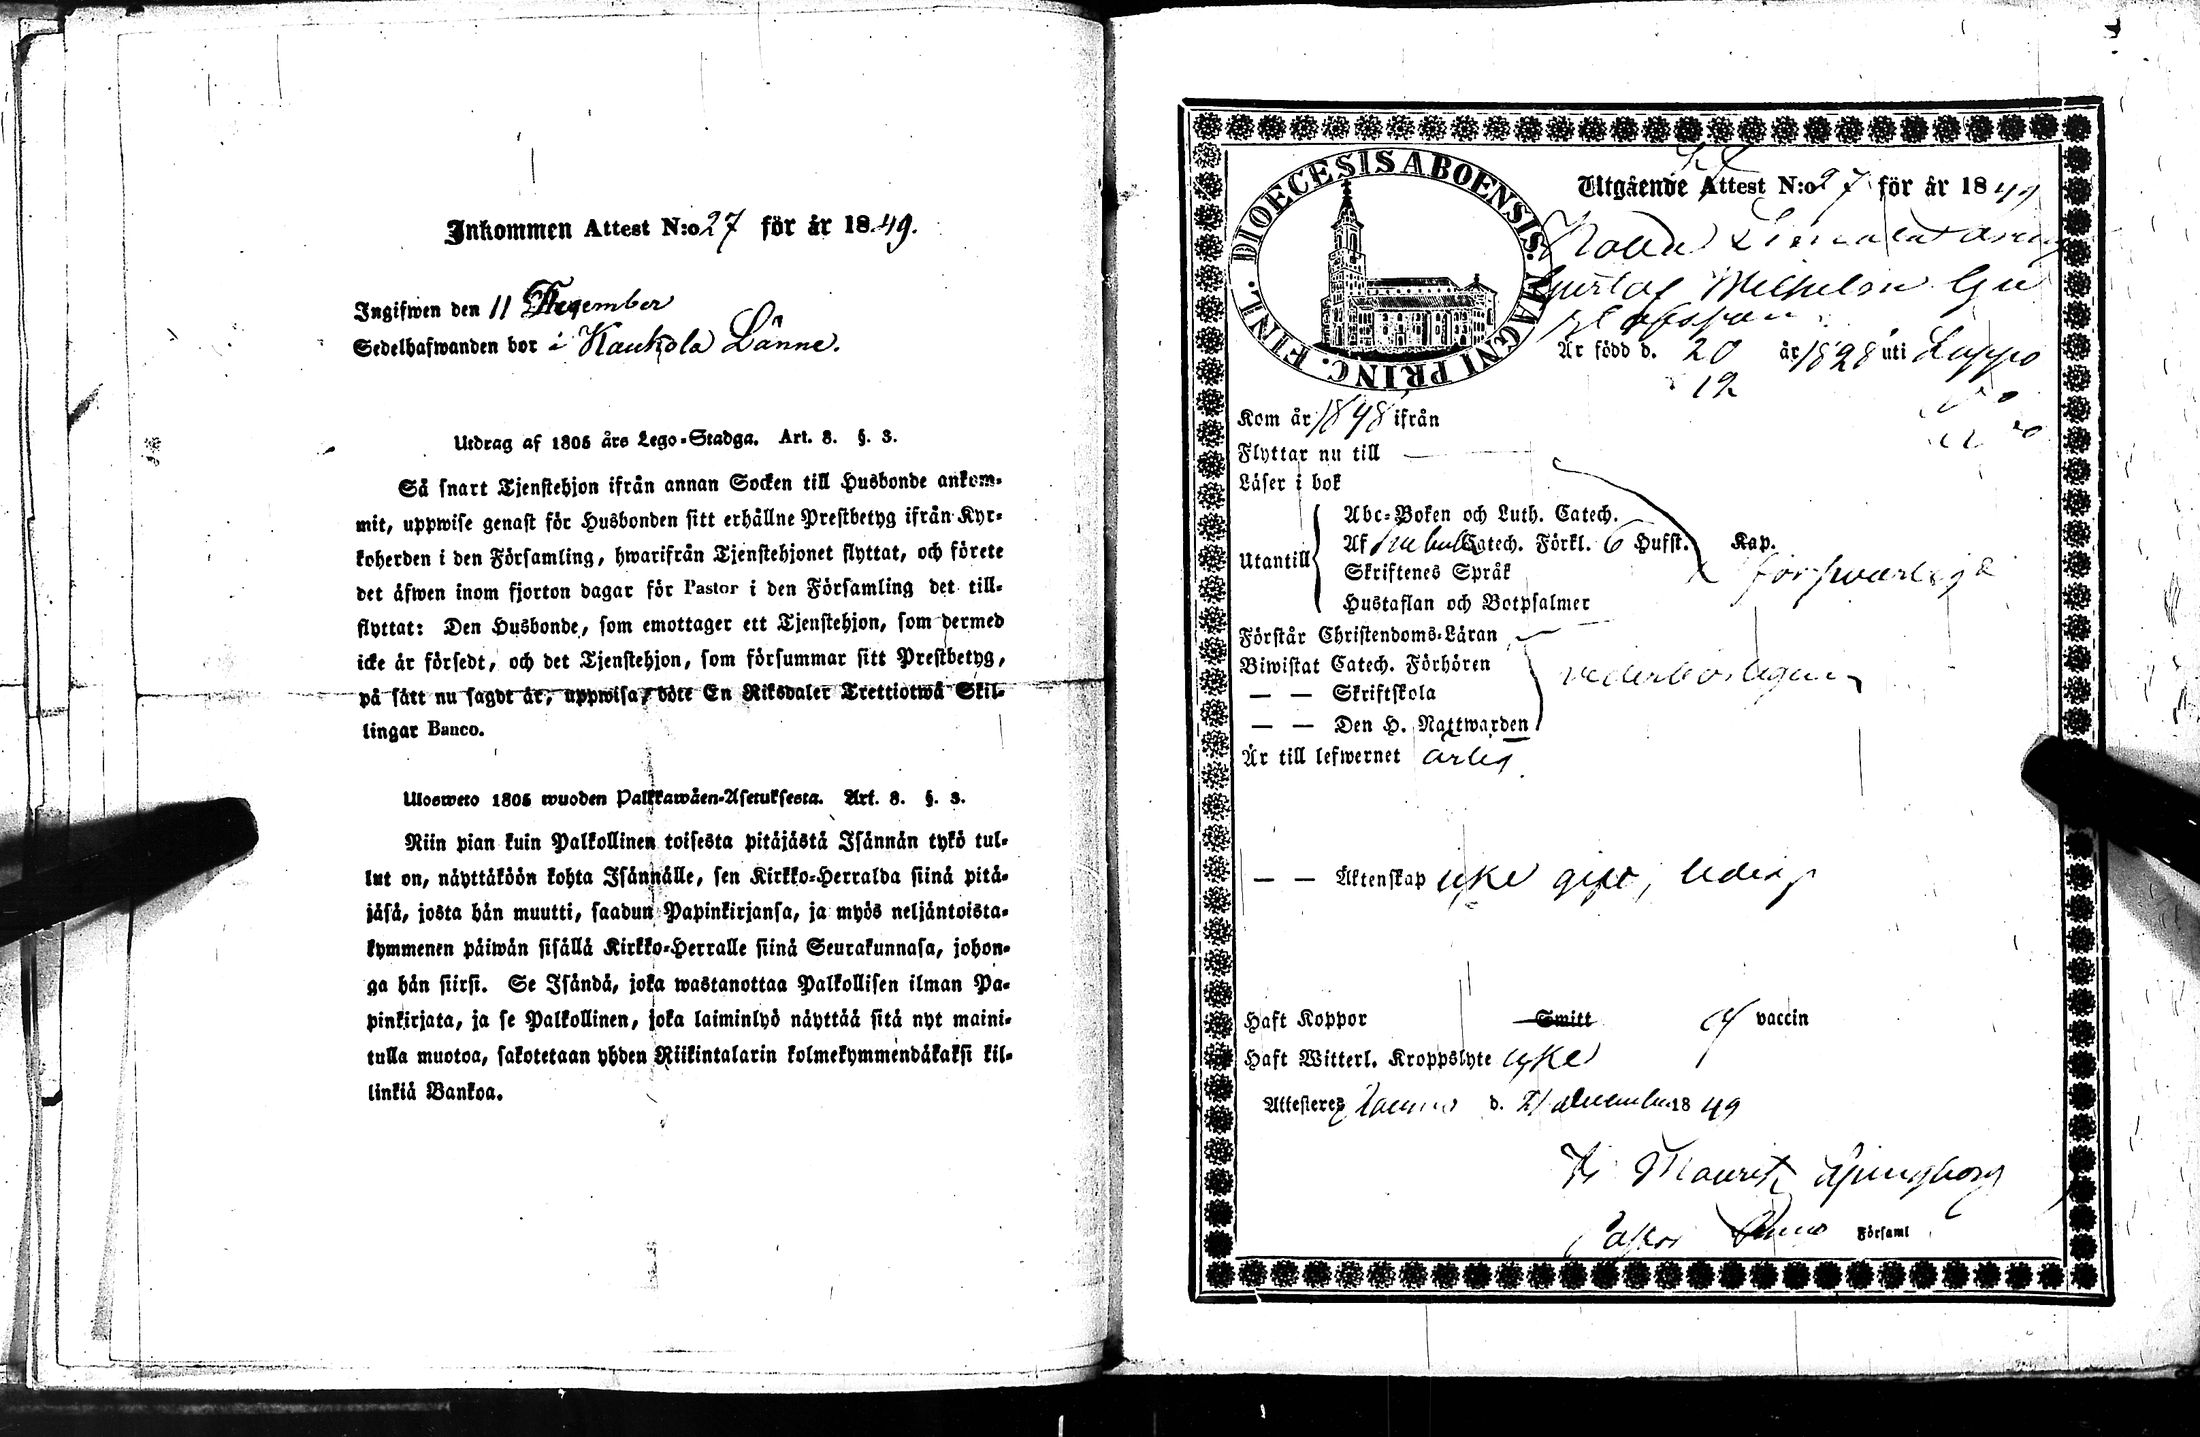 Inkommen Attest N:o 27 för år 1849.
Ingifwen den 11 December
Sedelhafwanden bor i Kaukola Länne.
Utdrag af 1805 års Lego-Stadga. Art. 8. §. 3.
Så snart Tjenstehjon ifrån annan Socken till Husbonde ankom-
mit, uppwise genast för Husbonden sitt erhållne Prestbetyg ifrån Kyr-
koherden i den Församling, hwarifrån Tjenstehjonet flyttat, och förete
det äfwen inom fjorton dagar för Pastor i den Församling det till-
flyttat: Den Husbonde, som emottager ett Tjenstehjon, som dermed
icke är försedt, och det Tjenstehjon, som försummar sitt Prestbetyg,
på sätt nu sagdt är, uppwisa, böte En Riksdaler Trettiotwå Skil-
lingar Banco.
Ulosweto 1805 wuoden Palkkawäen-Asetuksesta. Art. 8. §. 3.
Niin pian kuin Palkollinen toisesta pitäjästä Isännän tykö tul-
lut on, näyttäköön kohta Isännälle, sen Kirkko-Herralda siinä pitä-
jäsä, josta hän muutti, saadun Papinkirjansa, ja myös neljäntoista-
kymmenen päiwän sisällä Kirkko-Herralle siinä Seurakunnasa, johon-
ga hän siirsi. Se Isändä, joka wastanottaa Palkollisen ilman Pa-
pinkirjata, ja se Palkollinen, joka laiminlyö näyttää sitä nyt maini-
tulla muotoa, sakotetaan yhden Riikintalarin kolmekymmendäkaksi kil-
linkiä Bankoa.
DIOECESIS ABOENSIS. MAGNI PRINC. FINL.
Utgående Attest N:o 27 för år 1849
Gustaf Wilhelm Gu
Är född d. 20 år 1828 uti Lappo
12
Kom år 1848 ifrån
Flyttar nu till
Läser i bok
Abc-Boken och Luth. Catech.
Utantill
Af Catech. Förkl. 6 Hufst. Kap.
Skriftenes Språk försvarliga
Hustaflan och Botpsalmer
Förstår Christendoms-Läran
Biwistat Catech. Förhören
vederbörligen
— — Skriftskola
— — Den H. Nattwarden
Är till lefwernet ärlig
— — Äktenskap icke gift, ledig
Haft Koppor Smitt vaccin
Haft Witterl. Kroppslyte icke
Attesteres d. December 1849
Mauritz
Pastor Församl